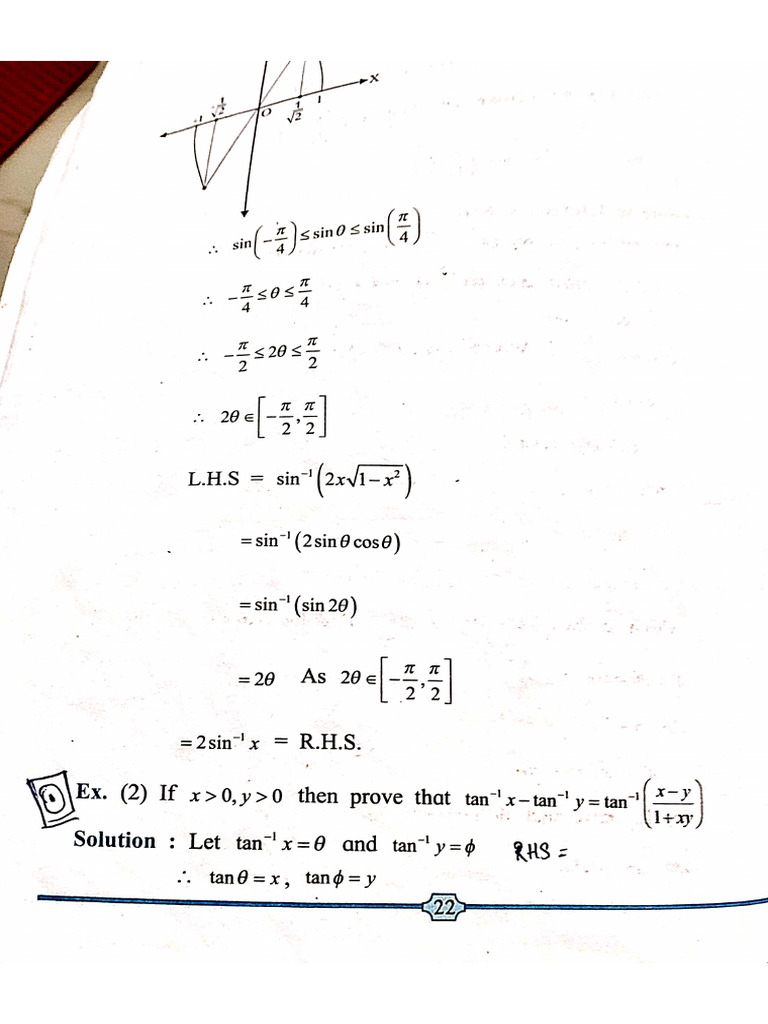 X
-1 -1/√2 O 1/√2 1
∴ sin(−π/4) ≤ sin θ ≤ sin(π/4)
∴ −π/4 ≤ θ ≤ π/4
∴ −π/2 ≤ 2θ ≤ π/2
∴ 2θ ∈ [−π/2, π/2]
L.H.S = sin⁻¹(2x√(1−x²))
= sin⁻¹(2 sin θ cos θ)
= sin⁻¹(sin 2θ)
= 2θ As 2θ ∈ [−π/2, π/2]
= 2 sin⁻¹ x = R.H.S.
Ex. (2) If x > 0, y > 0 then prove that tan⁻¹ x − tan⁻¹ y = tan⁻¹((x−y)/(1+xy))
Solution : Let tan⁻¹ x = θ and tan⁻¹ y = ϕ RHS =
∴ tan θ = x, tan ϕ = y
22